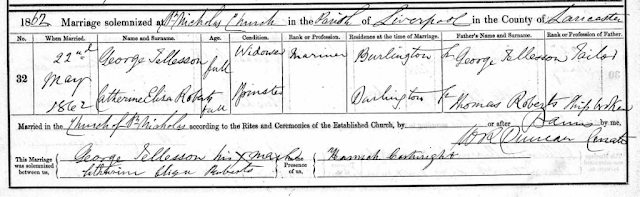 1862 Marriage solemnized at St Nicholas Church in the Parish of Liverpool in the County of Lancaster
No. When Married. Name and Surname. Age. Condition. Rank or Profession. Residence at the time of Marriage. Father's Name and Surname. Rank or Profession of Father.
32 22nd May 1862 George Tellesson full Widower Mariner Burlington St George Tellesson Tailor
Catherine Eliza Roberts full Spinster Burlington St Thomas Roberts Ship broker
Married in the Church of St Nicholas according to the Rites and Ceremonies of the Established Church, by or after Banns by me,
This Marriage was solemnized between us, George Tellesson his X mark in the Presence of us, Hannah Cartwright W R Duncan Curate
Catherine Eliza Roberts